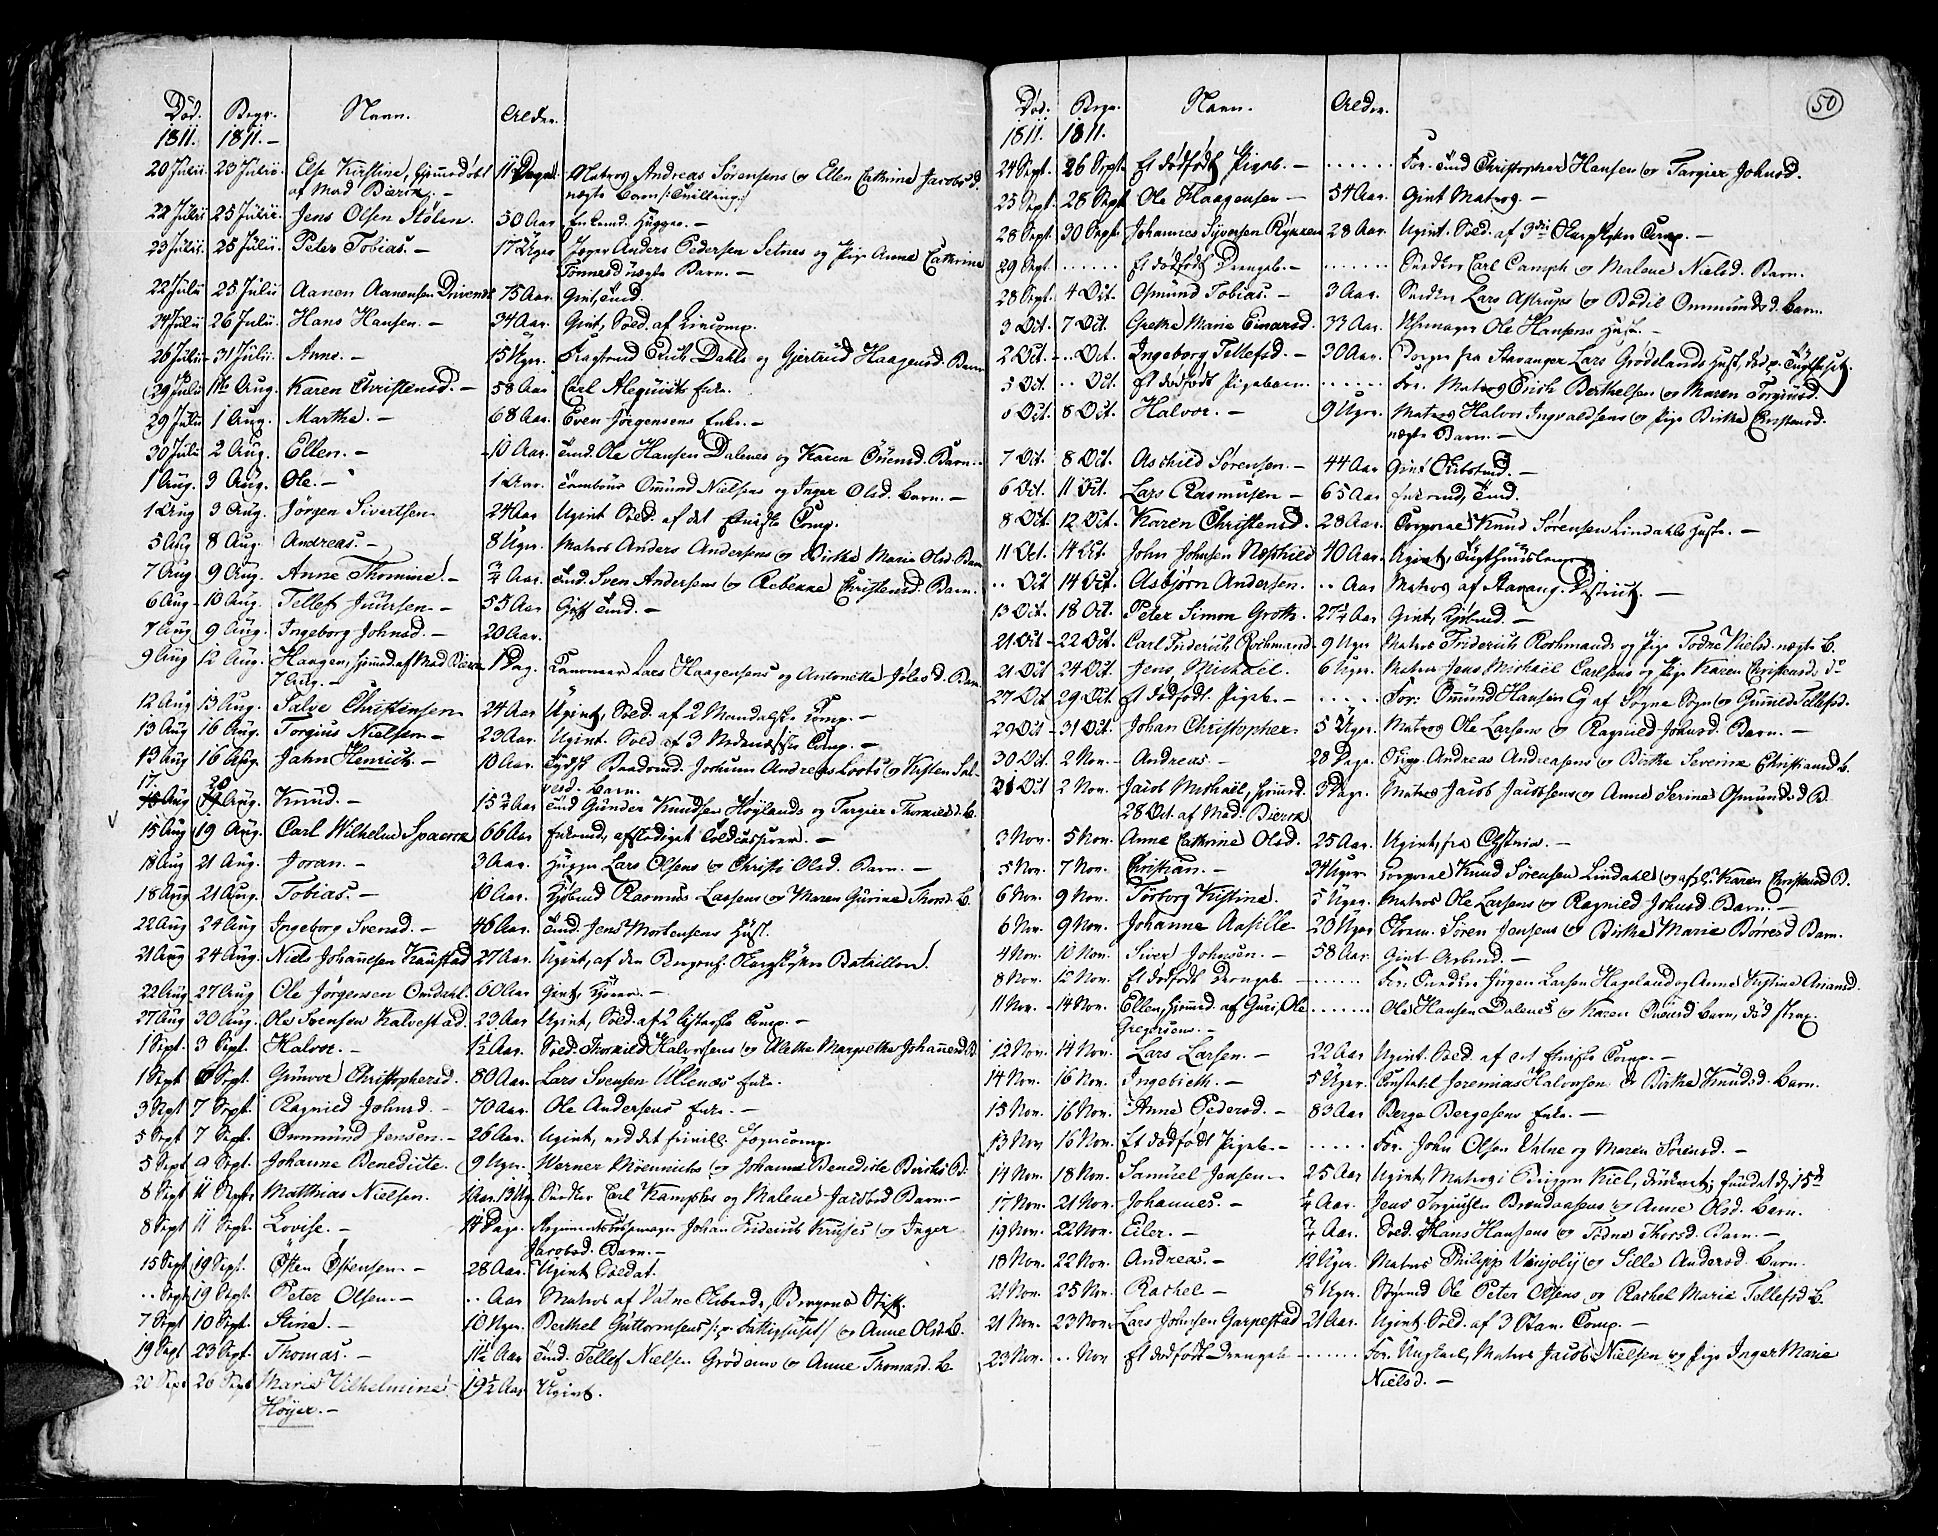 Død. Begr. Navn. Alder.
1811. 1811. -
20 Julii 23 Julii. Else Kirstine, hjemmedøbt 11 Dage. Matros Andreas Sørensens og Elen Cathrine Jacobsd.
af Mad Bierck. - uægte Barn /: Tvilling :/
22 Julii 25 Julii. Jens Olsen Stølen. 50 Aar Enkemd. Hugger. -
23 Julii. 25 Julii. Peter Tobias. - 17 Uger Jæger Anders Pedersen Setnes og Pige Anne Cathrine
uægte Barn. -
22 Julii 25 Julii Aanen Aanensen Drivenes 75 Aar. Givt,
24 Julii 26 Julii. Hans Hansen. - 34 Aar. Givt, Sold. af Liv comp.
26 Julii 31 Julii. Anne. - 15 Uger. Erich Dahls og Gjertrud Haagensd. Barn
29 Julii 1te Aug. Karen Christensd. - 58 Aar Carl Alequists Enke.
29 Julii 1 Aug. Marthe. - 68 Aar. Even Jørgensens Enke. -
30 Julii 2 Aug. Ellen. - 10 Aar. Ole Hansen Dalenes og Karen Barn.
1 Aug. 3 Aug. Ole. - 1 Aar. Tambour Omund Nielsens og Inger Olsd. Barn. -
1 Aug 3 Aug. Jørgen Sivertsen 24 Aar Ugivt Sold. af det Comp.
5 Aug 8 Aug. Andreas. - 8 Uger. Matros Anders Andersens og Birthe Marie Olsd. Barn
7 Aug 9 Aug. Anne Thomine. - 3/4 Aar. Sven Andersens og Rebekka Christensd. Barn.
6 Aug 10 Aug. Tellef Juulsen - 55 Aar Gift -
7 Aug 9 Aug. Ingeborg Johnsd. - 20 Aar.
9 Aug 12 Aug. Haagen, hjemd. af Mad Bierck 1 Dag. Lars Haagensens og Antonette Barn
7 Aug. -
12 Aug 13 Aug. Talve Christensen 24 Aar Ugivt, Sold. af 2 Mandalske Comp. -
13 Aug 16 Aug. Torgius Nielsen - 23 Aar. Ugivt. Sold af 3 Nedenæsske Comp. -
13 Aug 16 Aug. Jahn Henrich. - 10 Aar. Johann Andreas og Kirsten
Barn.
17 20
18 Aug 19 Aug. Knud. - 15 3/4 Aar Gunder Knudsen Høylands og Targier Thorkilsd. B.
15 Aug 19 Aug. Carl Wilhelm Spaerck 66 Aar Enkemd, afskediget
18 Aug 21 Aug. Joran. - 3 Aar. Hugger Lars Olsens og Christi Olsd. Barn. -
18 Aug 21 Aug. Tobias. - 10 Aar. Rasmus Lassens og Maren Gurine Thorsd. B.
22 Aug 24 Aug Ingeborg Svensd. - 46 Aar. Jens Mortensens Hust.
21 Aug 24 Aug. Niels Johannesen 27 Aar. Ugivt, af den Bergens. Skarpskytter Bataillon.
22 Aug 27 Aug Ole Jørgensen Omdahl. 60 Aar Givt,
27 Aug 30 Aug. Ole Svensen 23 Aar Ugivt, Sold. af 2 Listerske Comp. -
1 Sept. 3 Sept. Halvor. - 1 1/2 Aar. Sold. Thorkild Halvorsens og Alethe Margrethe Johannesd. B.
1 Sept. 6 Sept. Gunvor Christophersd. 80 Aar. Lars Svensen Ullenæs Enke.
3 Sept 7 Sept. Ragnild Johnsd. - 70 Aar. Ole Andersens Enke. -
5 Sept 7 Sept. Ommund Jensen. - 26 Aar. Ugivt, ved det frivill. Jægercomp.
5 Sept 9 Sept. Johanne Benedicte. 9 Uger. Werner og Johanne Benedicte B.
8 Sept 11 Sept. Matthias Nielsen. 1 Aar 13 Ug Snedker Carl Kamphs og Malene Jacobsd Barn. -
8 Sept 11 Sept. Lovise. - 14 Dage. Johan Friderich Kruses og Inger
Jacobsd. Barn. -
15 Sept 19 Sept. Østen Østensen. - 28 Aar. Ugivt Soldat.
.. Sept 19 Sept. Peter Olsen. - .. Aar Matros af Bergens Stift.
7 Sept 10 Sept. Stine. - 10 Uger. Berthel Guttormsens og Anne Olsd. B.
19 Sept 23 Sept. Thomas. - 11 1/2 Aar Tellef Nielsen Grødems og Anne Thomasd. B.
20 Sept 26 Sept Marie Vilhelmine 19 1/2 Aar Ugivt.
Høyer. -
50
Død. Begr. Navn. Alder.
1811. 1811.
24 Sept. 26 Sept. Et dødfødt Pigeb. - . . . . . . For: Christopher Hansen og Targier Johnsd.
25 Sept. 28 Sept Ole Haagensen - 54 Aar. Givt Matros. -
28 Sept. 30 Sept. Johannes Syversen 28 Aar. Ugivt. Sold. af 3die Skarpskytter Comp. -
29 Sept. . . . . . . Et dødfødt Drengeb. - . . . . . . Snedker Carl Camph og Malene Nielsd. Barn.
28 Sept. 4 Oct. Osmund Tobias. - 3 Aar. Snedker Lars Astrups og Bodil Ommundsd. Barn.
3 Oct. 7 Oct. Grethe Marie Einarsd. 33 Aar. Uhrmager Ole Hansens Hust. -
2 Oct. .. Oct. Ingeborg Tellefsd. - 30 Aar. Borger fra Stavanger Lars Grødelands Hust, død i Tugthuset.
5 Oct. .. Oct. Et dødfødt Pigebarn. . . . . . . For. Matros Erich Berthelsen og Maren Torgiusd.
6 Oct. 8 Oct. Halvor. - 9 Uger. Matros Halvor Ingvaldsens og Pige Birthe Christensd.
uægte Barn. -
7 Oct. 8 Oct. Aschild Sørensen. - 44 Aar Givt
6 Oct. 11 Oct. Lars Rasmusen - 65 Aar Enkemd,
8 Oct. 12 Oct. Karen Christensd. 28 Aar. Corporal Knud Sørensen Lindahls Hust. -
11 Oct. 14 Oct. John Johnsen 40 Aar. Ugivt,
.. Oct 14 Oct. Asbjørn Andersen. .. Aar Matros af Stavang. District. -
13 Oct. 18 Oct. Peter Simon Groth. 27 1/2 Aar Givt,
21 Oct - 22 Oct. Carl Friderich Rothmand 9 Uger Matros Friderich Rothmands og Pige Todne Nielsd. uægte B.
21 Oct 24 Oct. Jens Michael. 6 Uger. Matros Jens Michael Carlsens og Pige Karen Christensd. do
27 Oct 29 Oct. Et dødfødt. Pigeb. - . . . . . For: Omund Hansen Eg af Søgne Sogn og Gunild Tellefsd.
29 Oct - 31 Oct. Johan Christopher. 5 Uger. Matros Ole Larsens og Ragnild Johnsd. Barn. -
30 Oct. 2 Nov. - Andreas - 28 Dage. Andreas Andreasens og Birthe Severine Christiansd B.
31 Oct 2 Nov. Jacob Michael, hjemd. 3 Dage. Matros Jacob Jacobsens og Anne Serine Osmundsd B.
28 Oct. af Mad. Bierck
3 Nov. 5 Nov. Anne Cathrine Olsd. 25 Aar. Ugivt, fra
5 Nov. 7 Nov. Christian. - 34 Uger Corporal Knud Sørensen Lindahls og Karen Christensd B.
6 Nov. 9 Nov. Torborg Kirstine. 5 Uger. Matros Ole Larsens og Ragnild Johnsd. Barn. -
6 Nov. 9 Nov. Johanne Aasille 20 Uger Søren Jensens og Birthe Marie Børresd Barn.
4 Nov. 10 Nov. Siver Johnsen. - 58 Aar. Givt Arbmd. -
8 Nov. 12 Nov. Et dødfødt Drengeb. . . . . . . For: Snedker Jørgen Larsen Hageland og Anne Kirstine
11 Nov. - 14 Nov. Ellen, hjemd. af Guri Ole . . . . . . Ole Hansen Dalenes og Karen Barn, død strax.
Gregersens. -
12 Nov. 14 Nov. Lars Larsen. - 22 Aar Ugivt. Sold. af det Comp. -
14 Nov. 16 Nov. Ingebieth. - 5 Uger. Constabl Jeremias Halvorsens og Birthe Knudsd. Barn.
15 Nov. 16 Nov. Anne Pedersd. - 83 Aar Berge Bergesens Enke. -
13 Nov. 16 Nov. Et dødfødt Pigeb. - . . . . . For. John Olsen Valne og Maren Sørensd. -
14 Nov. 18 Nov. Samuel Jensen - 25 Aar Ugivt, Matros i Briggen Kiel, druknet; fundet d. 15de
17 Nov. 21 Nov. Johannes. - 1/4 Aar. Jens Torgiusen og Anne Olsd. Barn.
19 Nov. 22 Nov. Eiler. - 3/4 Aar. Sold. Hans Hansens og Todne Thorsd. Barn. -
18 Nov. 22 Nov. Andreas. - 12 Uger. Matros Philipp og Sille Andersd. Barn.
21 Nov. 25 Nov. Rachel. - 8 Uger. Styrmd Ole Peter Olsens og Rachel Marie Tellefsd B.
21 Nov. 23 Nov. Lars Johnsen Garpestad 21 Aar. Ugivt. Sold. af 3 Stav. Comp. -
23 Nov. .. Nov Et dødfødt Drengeb. . . . . . . For. Ungkarl, Matros Jacob Nielsen og Pige Inger Marie
Nielsd. -